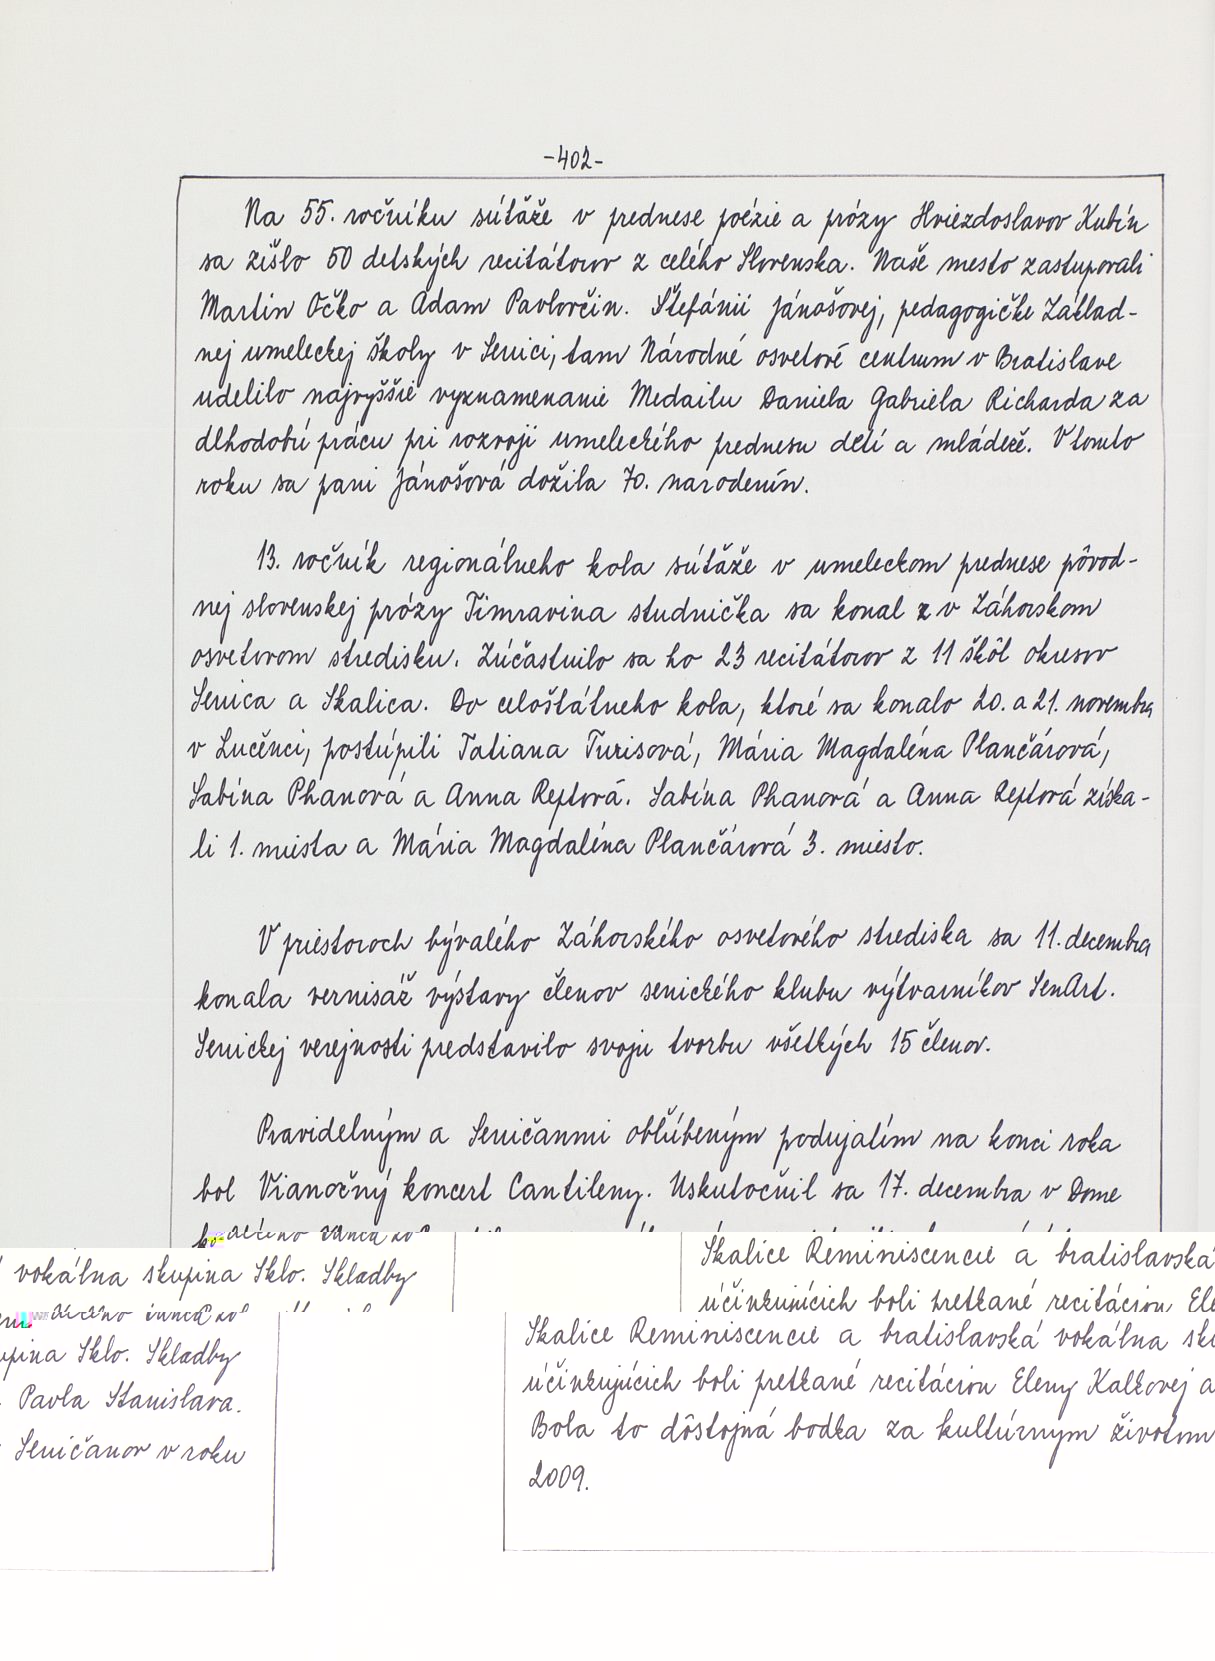 -402-
Na 55. ročníku súťaže v prednese poézie a prózy Hviezdoslavov Kubín
sa zišlo 50 detských recitátorov z celého Slovenska. Naše mesto zastupovali
Martin Očko a Adam Pavlovčin. Štefánii Jánošovej, pedagogičke Základ-
nej umeleckej školy v Senici, tam Národné osvetové centrum v Bratislave
udelilo najvyššie vyznamenanie Medailu Daniela Gabriela Richarda za
dlhodobú prácu pri rozvoji umeleckého prednesu detí a mládeže. V tomto
roku sa pani Jánošová dožila 70. narodenín.
13. ročník regionálneho kola súťaže v umeleckom prednese pôvod-
nej slovenskej prózy Timravina studnička sa konal z v Záhorskom
osvetovom stredisku. Zúčastnilo sa ho 23 recitátorov z 11 škôl okresov
Senica a Skalica. Do celoštátneho kola, ktoré sa konalo 20. a 21. novembra
v Lučenci, postúpili Tatiana Turisová, Mária Magdaléna Plančárová,
Sabína Phanová a Anna Reptová. Sabína Phanová a Anna Reptová získa-
li 1. miesta a Mária Magdaléna Plančárová 3. miesto.
V priestoroch bývalého Záhorského osvetového strediska sa 11. decembra
konala vernisáž výstavy členov senického klubu výtvarníkov SenArt.
Senickej verejnosti predstavilo svoju tvorbu všetkých 15 členov.
Pravidelným a Seničanmi obľúbeným podujatím na konci roka
bol Vianočný koncert Cantileny. Uskutočnil sa 17. decembra v Dome
Skalice Reminiscencie a bratislavská
vokálna skupina Sklo. Skladby
účinkujúcich boli pretkané recitáciou
Skalice Reminiscencie a bratislavská vokálna
Sklo. Skladby
účinkujúcich boli pretkané recitáciou Eleny Kalkovej a
Pavla Stanislava.
Bola to dôstojná bodka za kultúrnym životom
Seničanov v roku
2009.